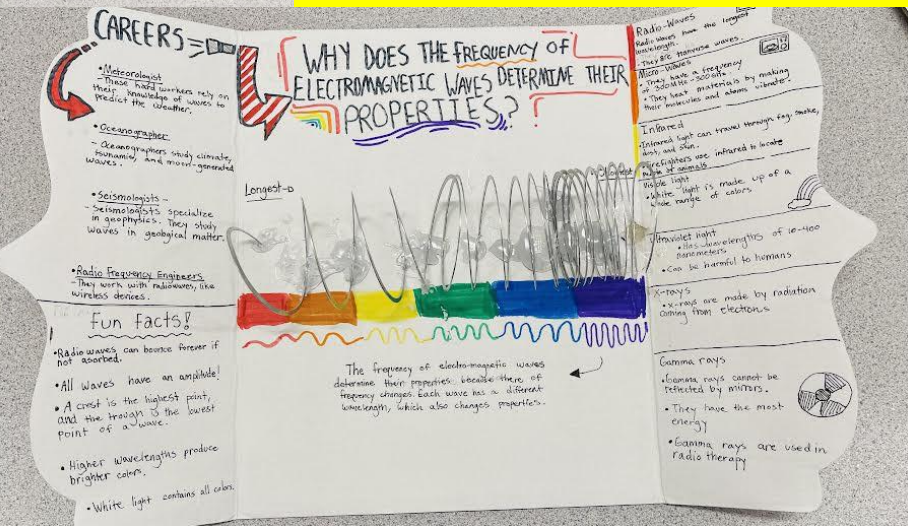 CAREERS
• Meteorologist
- These hard workers rely on
their knowledge of waves to
predict the weather.
• Oceanographer
- Oceanographers study climate,
tsunamis, and moon-generated
waves.
• Seismologists -
- Seismologists specialize
in geophysics. They study
waves in geological matter.
• Radio Frequency Engineers
- They work with radiowaves, like
wireless devices.
Fun Facts!
• Radio waves can bounce forever if
not asorbed.
• All waves have an amplitude!
• A crest is the highest point,
and the trough is the lowest
point of a wave.
• Higher wavelengths produce
brighter colors.
• White light contains all colors.
WHY DOES THE FREQUENCY OF
ELECTROMAGNETIC WAVES DETERMINE THEIR
PROPERTIES?
Longest
The frequency of electro-magnetic waves
determine their properties because there of
frequency changes. Each wave has a different
wavelength, which also changes properties.
Radio-Waves
Radio Waves have the longest
wavelength.
• They are waves.
Micro-Waves
• They have a frequency
of
• They heat materials by making
their molecules and atoms vibrate.
Infrared
• Infrared light can travel through fog, smoke,
dust, and
• Firefighters use infrared to locate
animals
Visible light
• White light is made up of a
wide range of colors
Ultraviolet light
• Has wavelengths of 10-400
nanometers
• Can be harmful to humans
X-rays
• X-rays are made by radiation
coming from electrons
Gamma rays
• Gamma rays cannot be
reflected by mirrors.
• They have the most
energy
• Gamma rays are used in
radio therapy